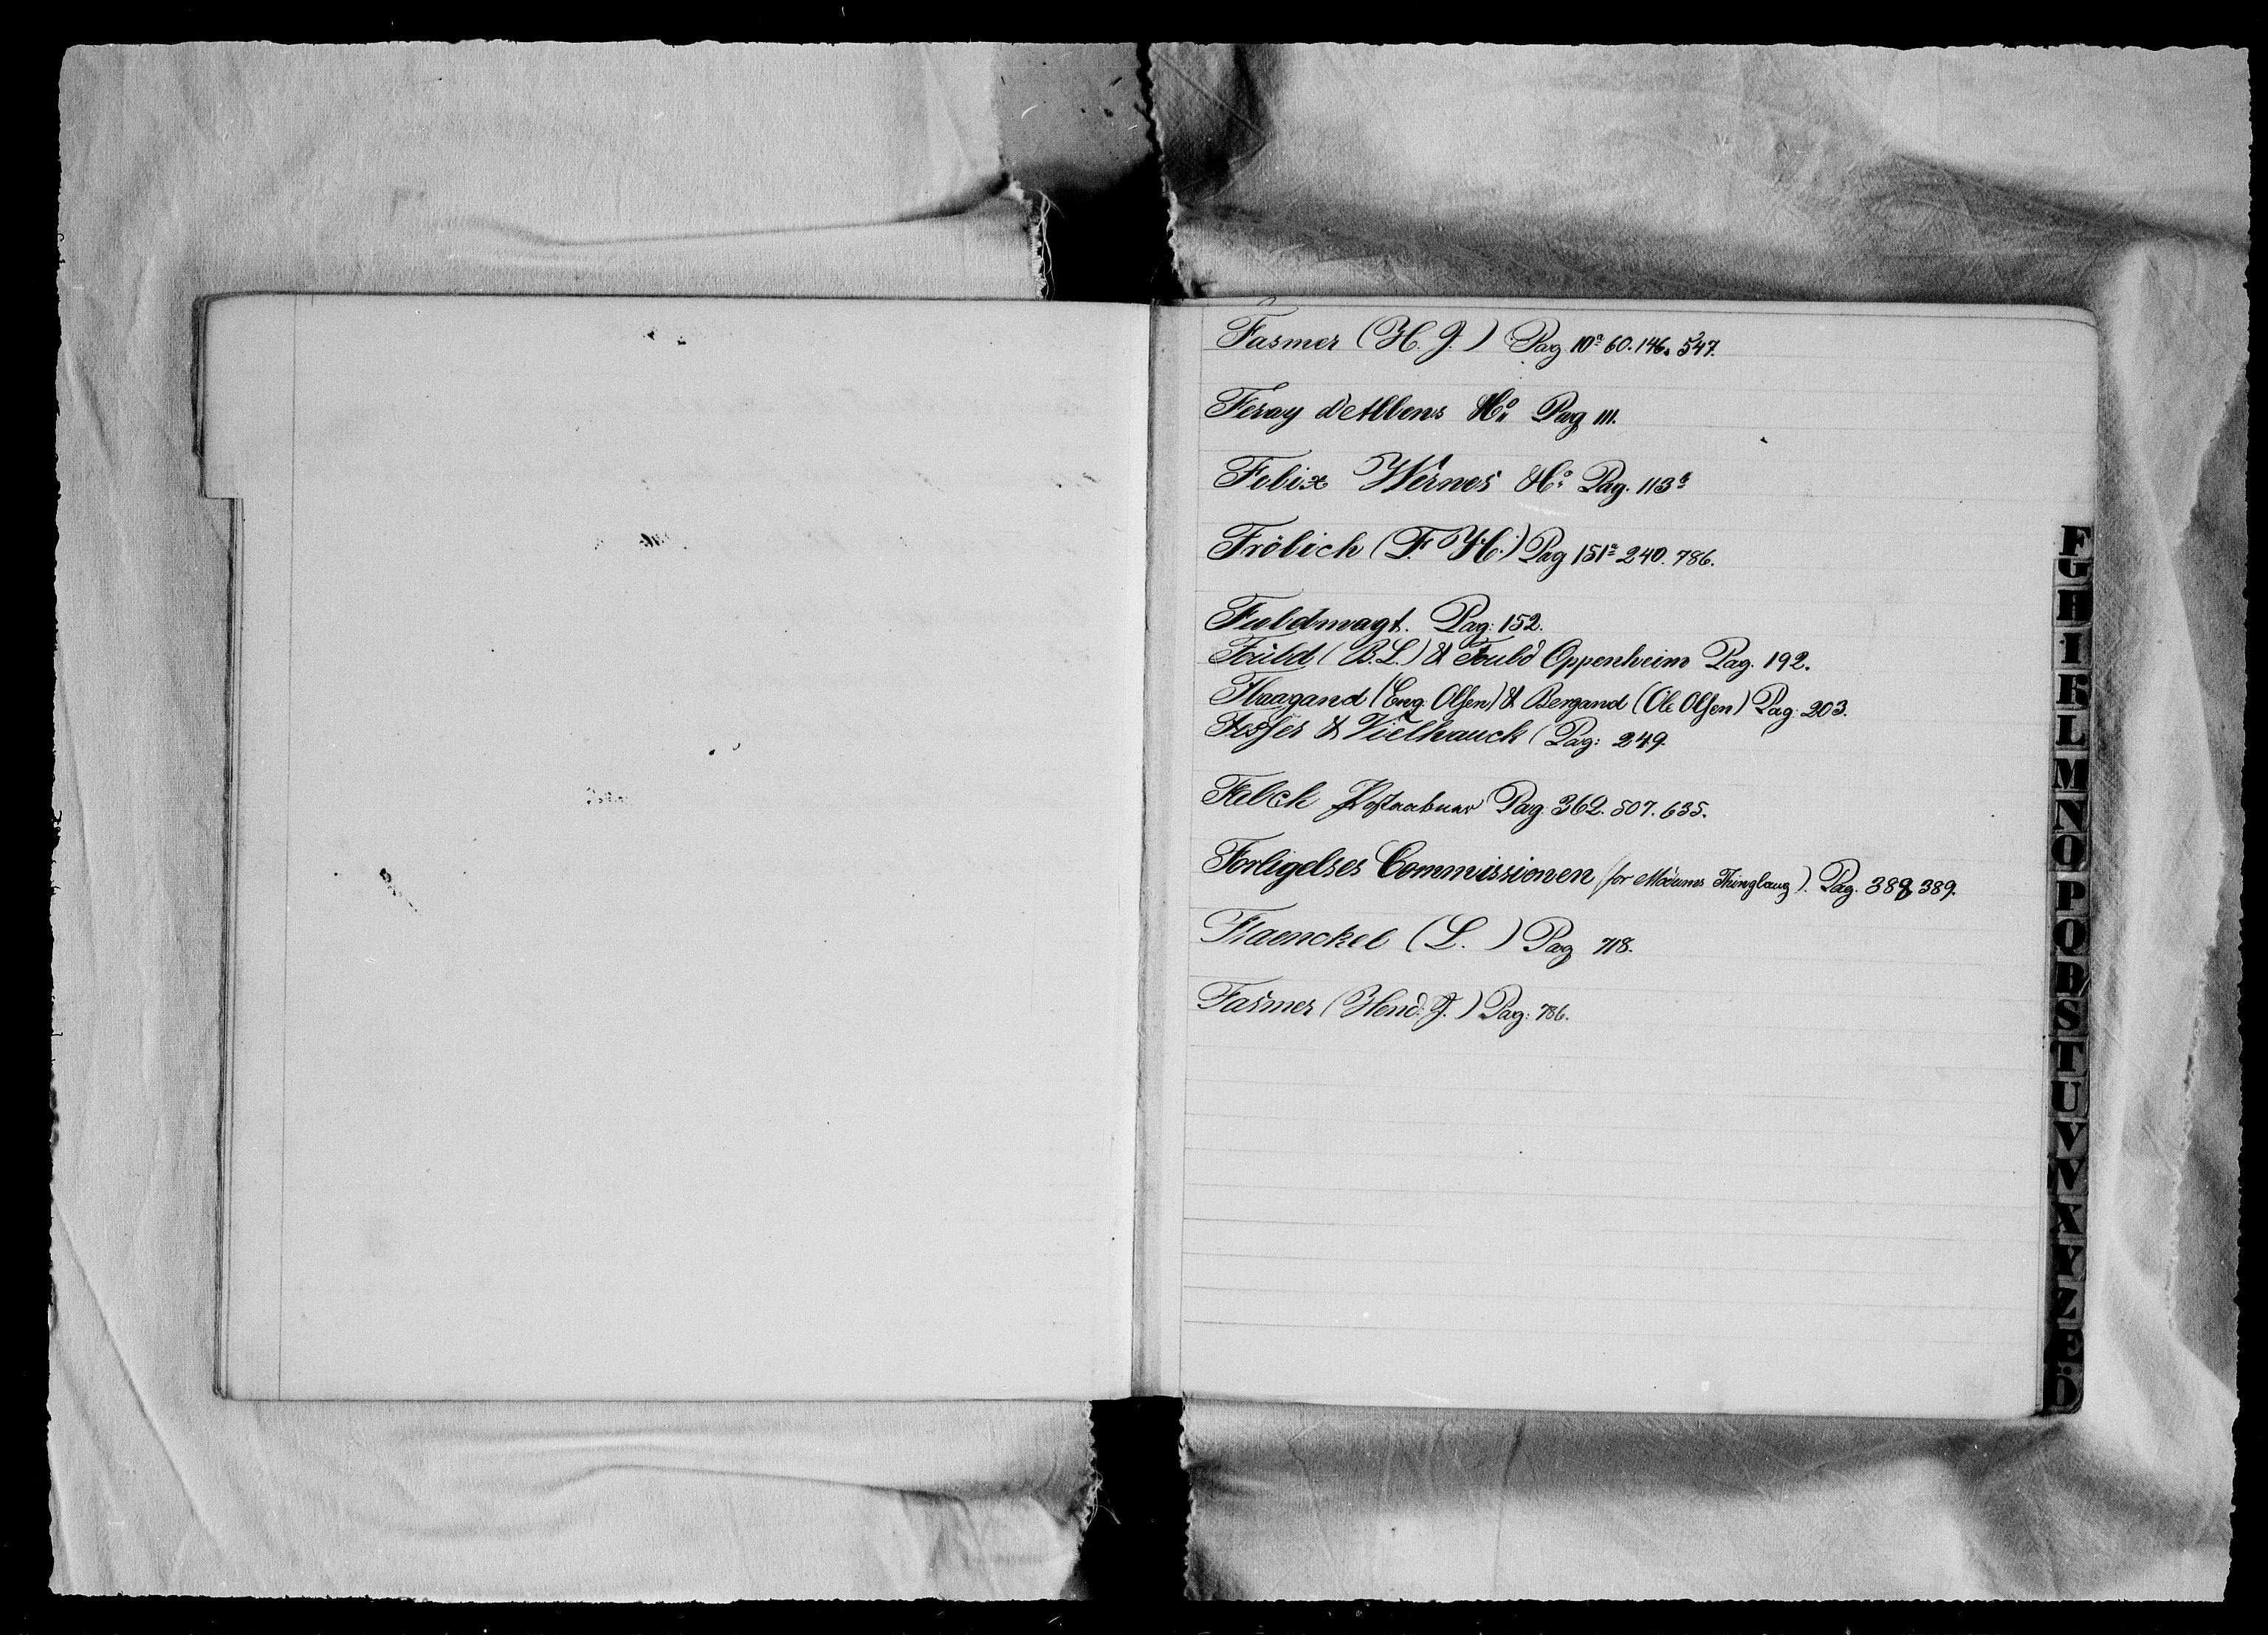 Fasmer (H. J.) Pag 10ª 60. 146. 547.
Feray d'Albens &Cº Pag 111.
Felix Wernes &Cº Pag. 113ª
Frölich (F. H.) Pag 151ª 240. 786.
Fuldmagt. Pag: 152.
Fould (B. L.) & Fould Oppenheim Pag. 192.
Flaagand (Eng. Olsen) & Bergand (Ole Olsen) Pag: 203.
& Vielhauck Pag: 249.
Felch Postaabner Pag. 362. 507. 635.
Forligelses Commissionen (for Modums Thinglaug). Pag. 388 389.
Fraenckel (L.) Pag 718.
Fasmer (Hend: J.) Pag: 786.
F
G
H
I
K
L
M
N
O
P
Q
R
S
T
U
V
W
X
Y
Z
Æ
Ö